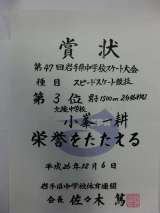 賞状
第47回岩手県中学校スケート大会
種目 スピードスケート競技
第3位 1500m
中学校
小峯一耕
栄誉をたたえる
平成26年12月6日
岩手県中学校体育連盟
会長 佐々木篤